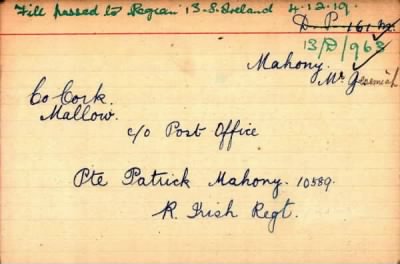 File passed to Region 13. S. Ireland 4.12.19.
D. P. 161 M.
13/D/963
Mahony.
Mr Jeremiah
Co Cork.
Mallow.
c/o Post Office
Pte Patrick Mahony. 10589.
R. Irish Regt.